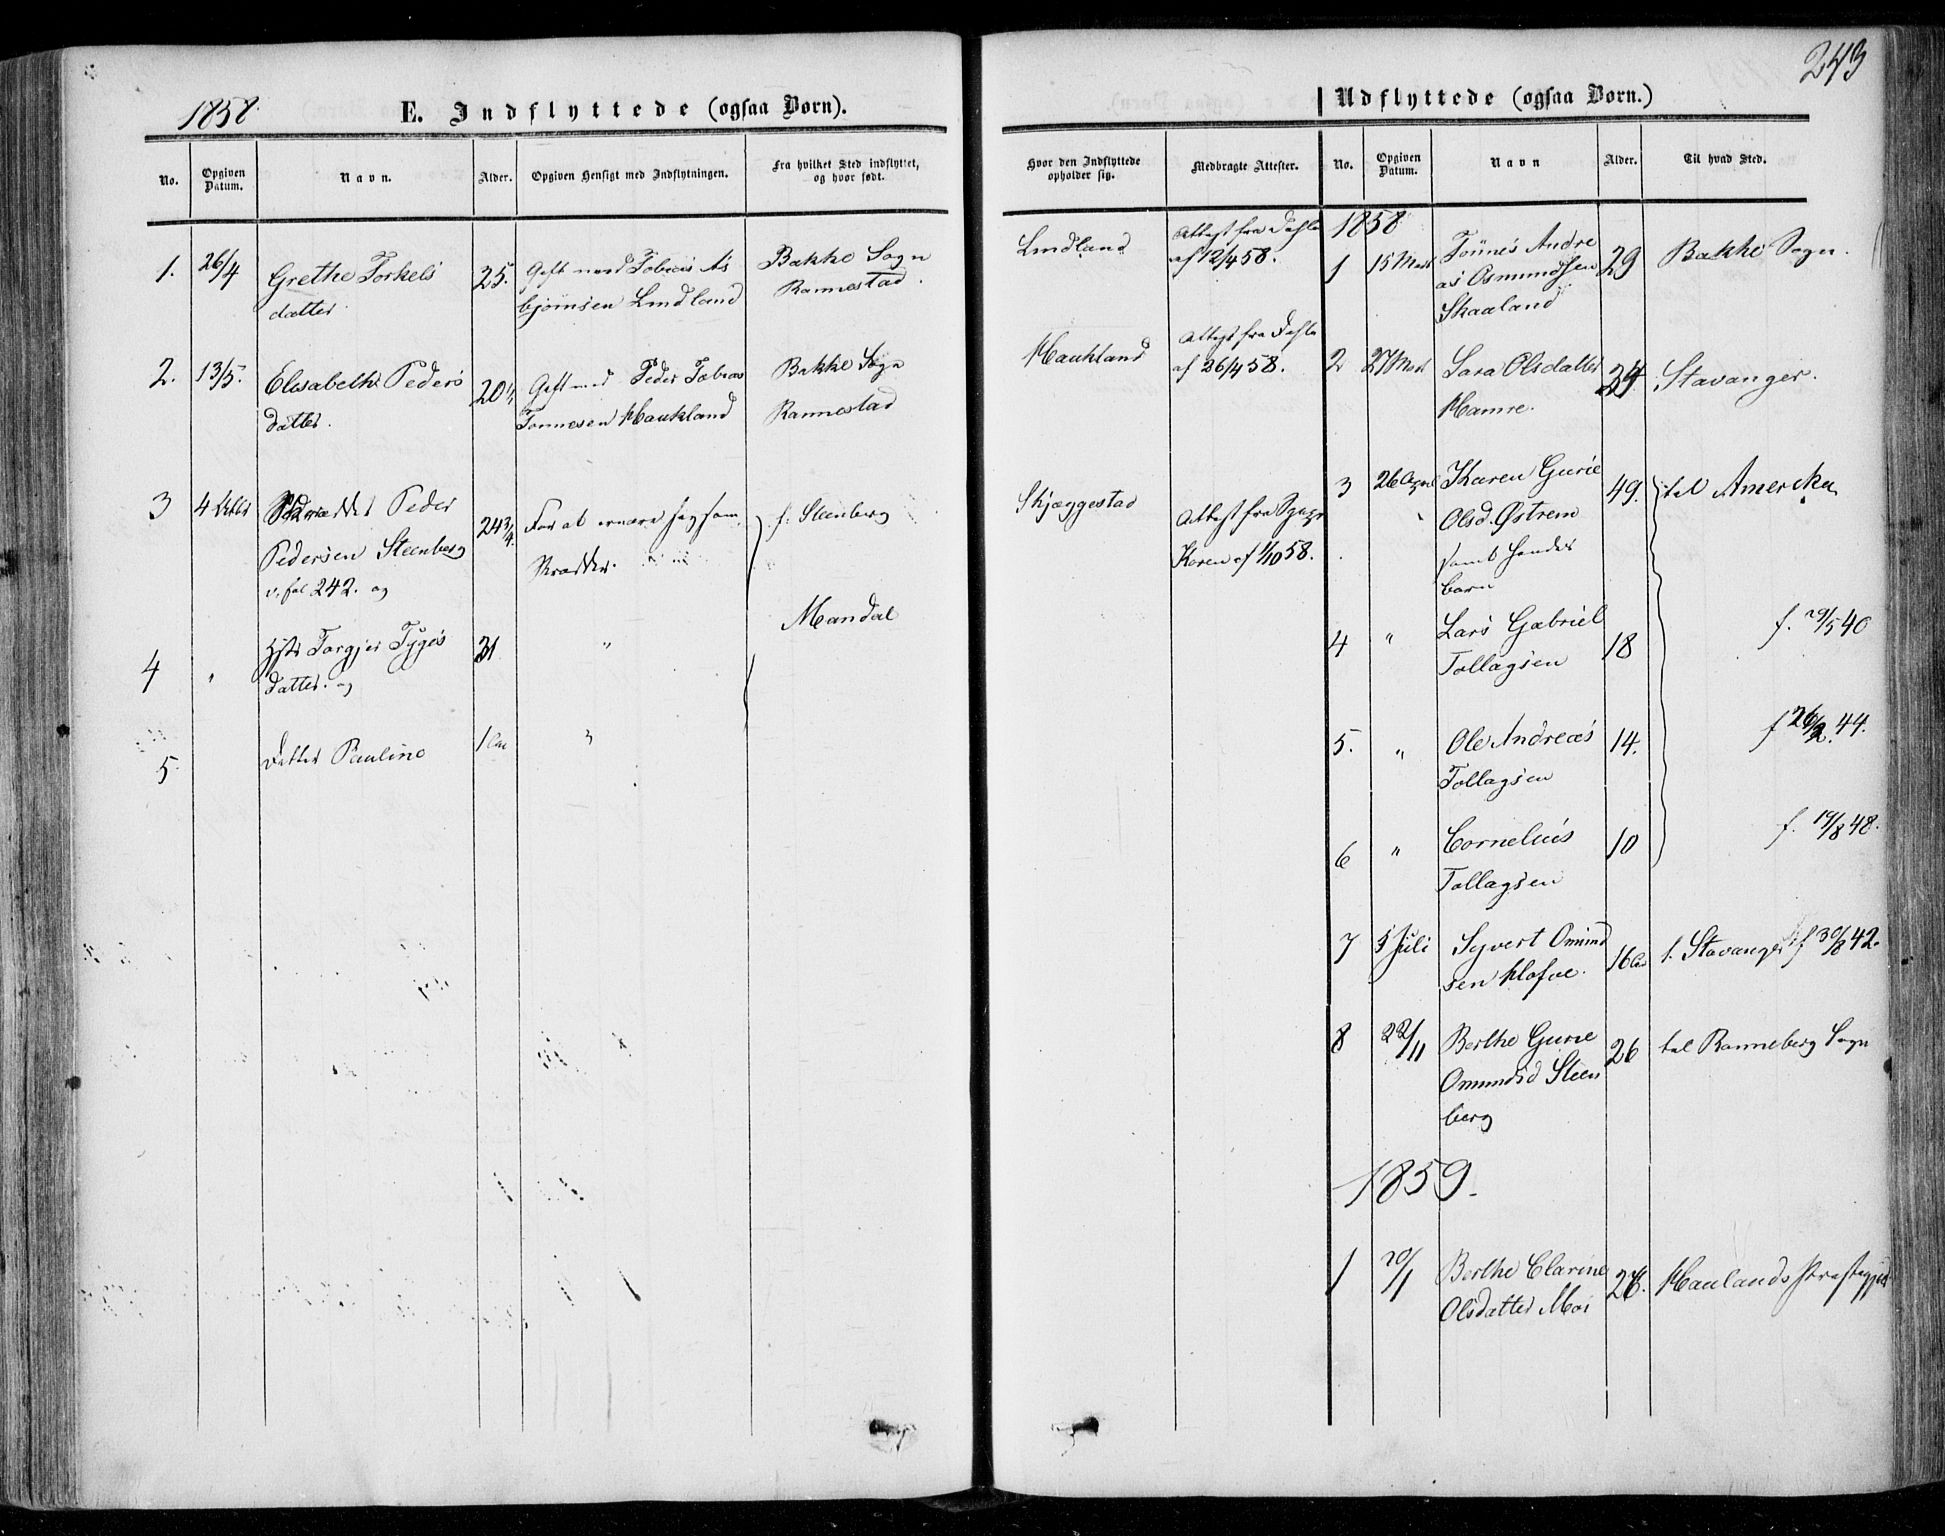 243
1858.
E. Indflyttede (ogsaa Børn).
No.
Opgiven Datum.
Navn.
Alder.
Opgiven Hensigt med Indflytningen.
Fra hvilket Sted indflyttet,
og hvor født.
1. 26/4 Grethe Torkels 25. Gift med Tobias As Bakke Sogn
datter bjørnsen Lindland Rannestad.
2. 13/5. Elisabeth Peders 20 Gift med Peder Tobias Bakke Sogn
datter. Tønnesen Haukland Rannestad
3 4 Peder 24 3/4. For at ernære sig som f. Steenberg
Pedersen Steenberg
v. fol 242. og
4 " Torgjer Tyges 31 " Mandal
datter. og
5 datter Pauline 1
Hvor den Indflyttede
opholder sig.
Medbragte Attester.
Lindland Attest fra
af 12/4 58.
Haukland Attest fra
af 26/4 58.
Skjæggestad Attest fra
Koren af 1/10 58.
Udflyttede (ogsaa Børn.)
No.
Opgiven Datum.
Navn
Alder.
Til hvad Sted.
1858
1 15 Tønnes Andre 29 Bakke Sogn.
as Osmundsen
Skaaland
2 27 Sara Olsdatter 24. Stavanger.
Hamre.
3 26 April Karen Gurie 49. til Amerika
Olsd. Østrem
samt hendes
børn
4 " Lars Gabriel 18 f. 29/5 40
Tollagsen
5. " Ole Andreas 14. f 26/2. 44.
Tollagsen
6 " Cornelius 10 f. 19/8 48.
Tollagsen
7 5 Juli Syvert Omund 16 t. Stavanger f 30/8 42.
sen
8 22/11 Berthe Gurie 26 til Ranneberg Sogn
Omundsd Steen
berg
1859.
1 20/1 Berthe Clarine 26. Haulands Præstegjeld
Olsdatter Moi